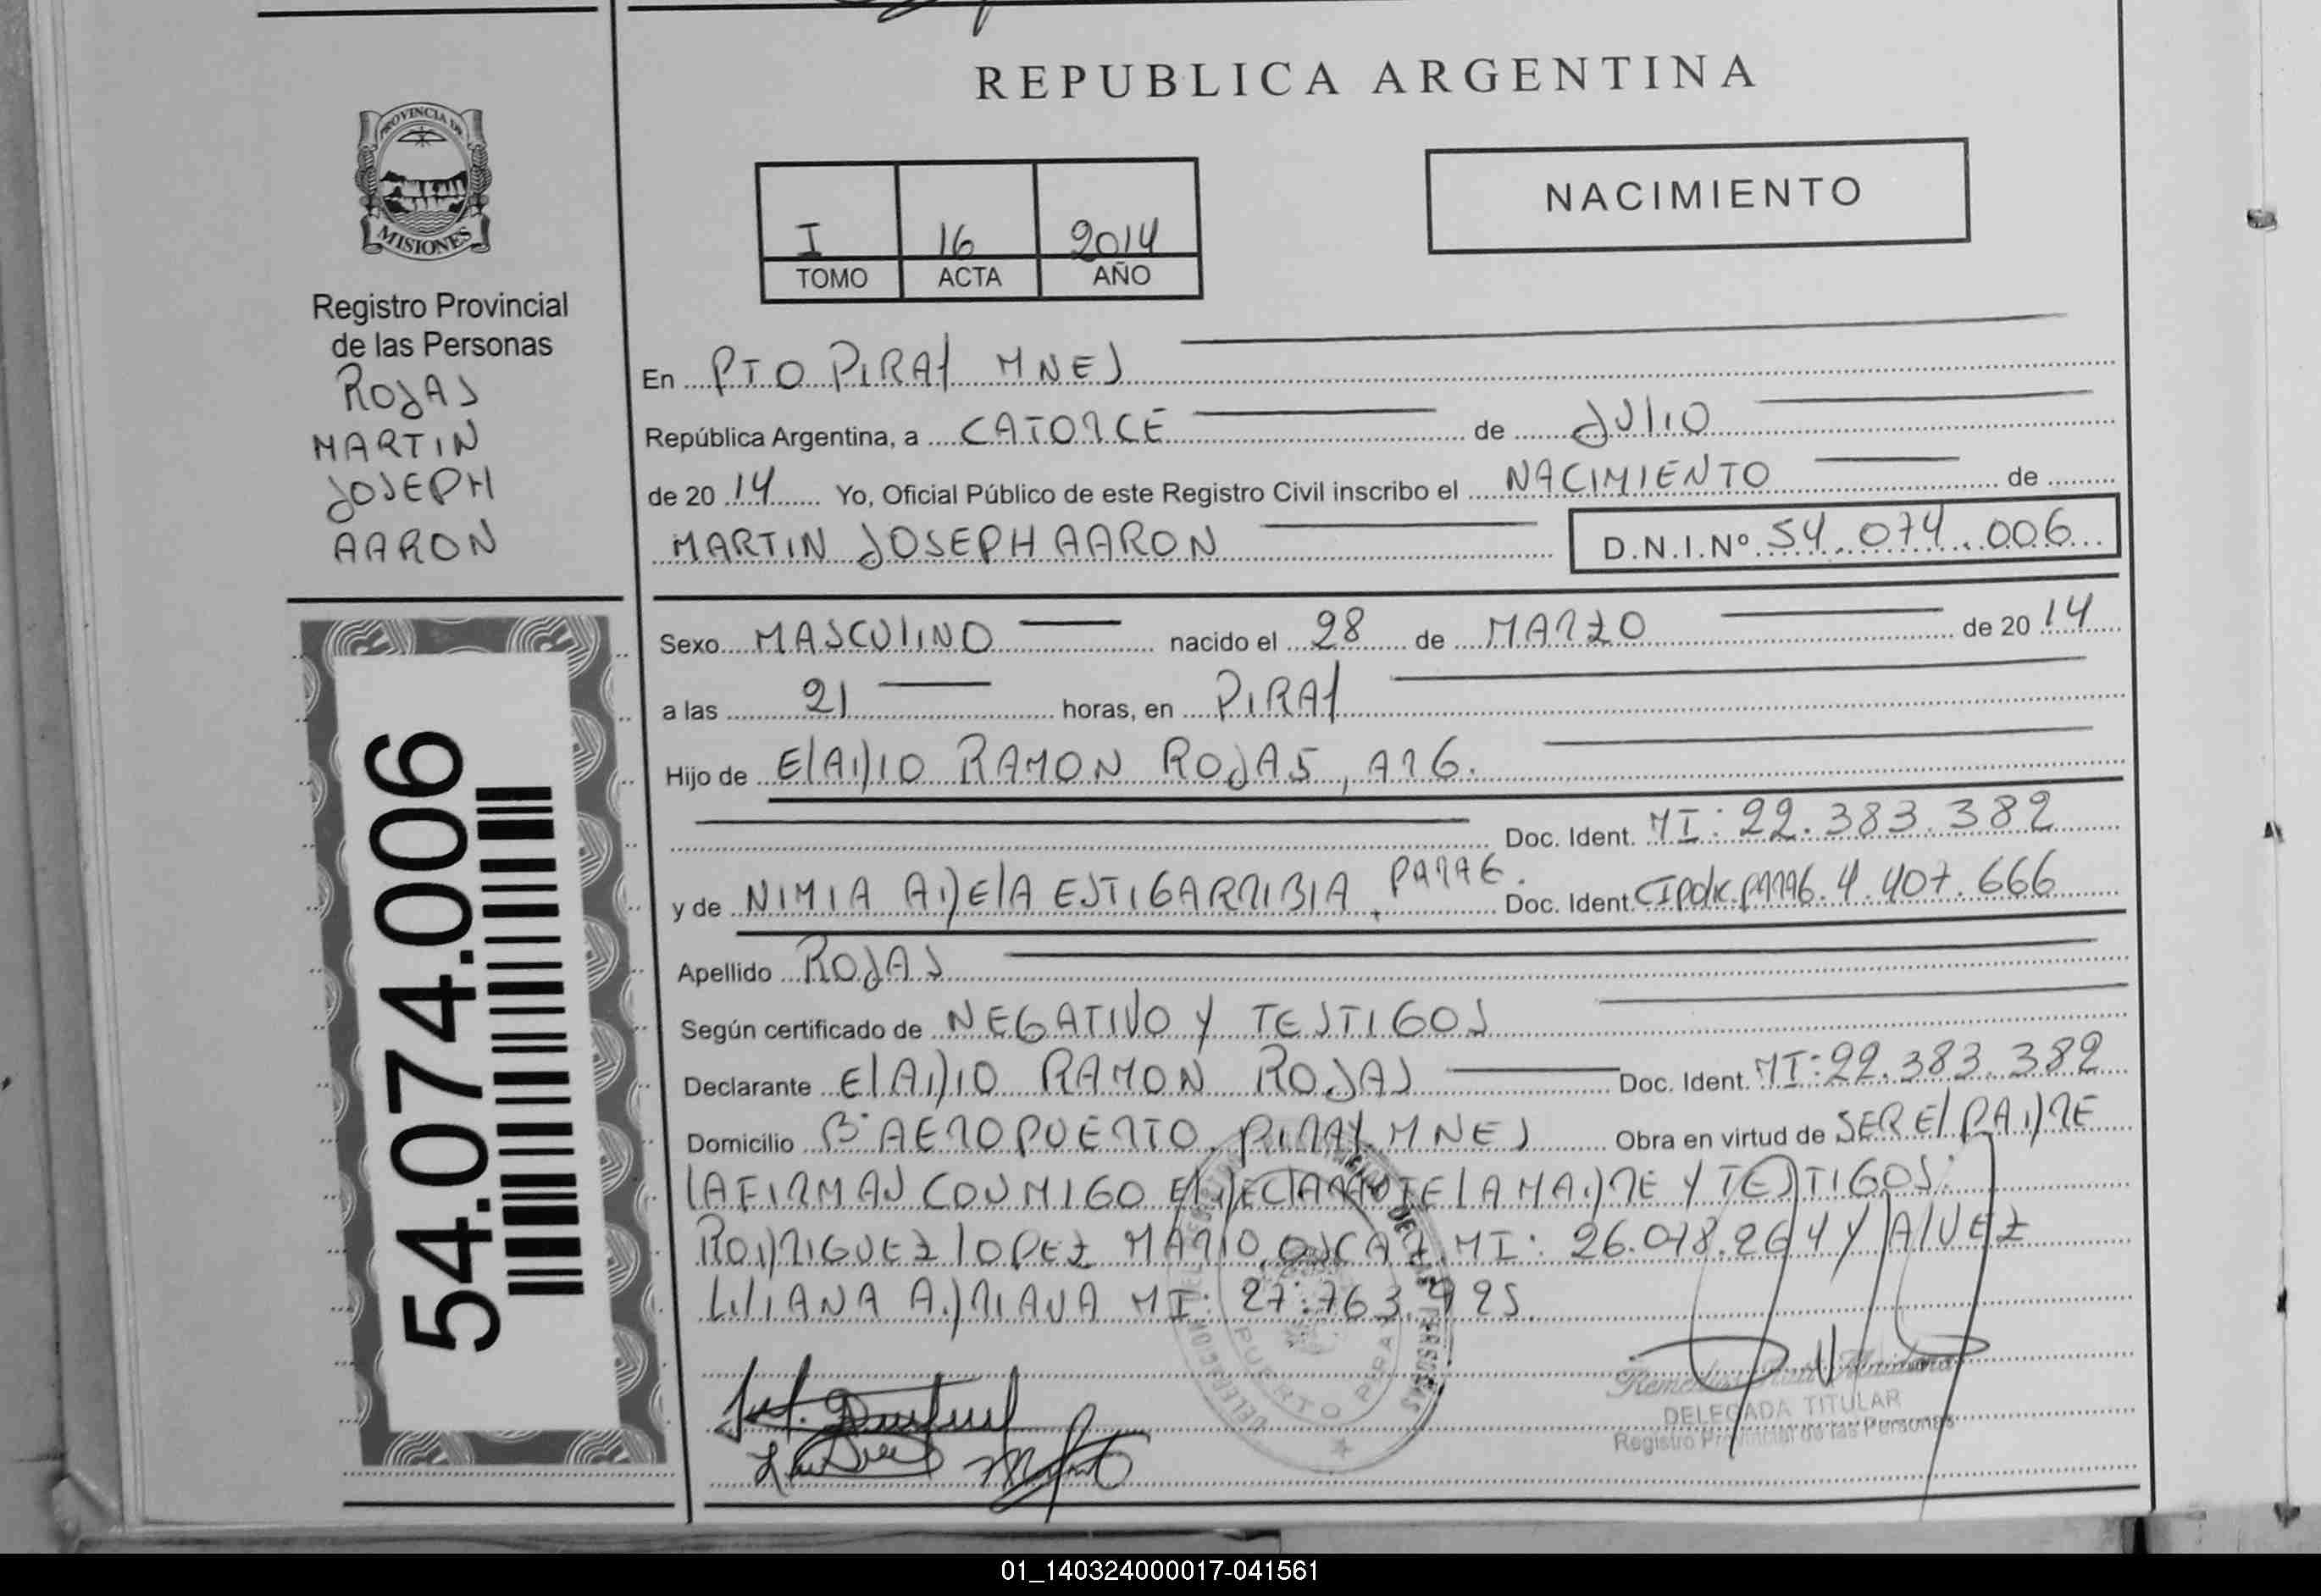 REPUBLICA ARGENTINA
PROVINCIA DE
MISIONES
Registro Provincial
de las Personas
ROJAS
MARTIN
JOSEPH
AARON
54.074.006
NACIMIENTO
I 16 2014
TOMO ACTA AÑO
En PTO PIRAY MNES
República Argentina, a CATORCE de JULIO
de 20 14 Yo, Oficial Público de este Registro Civil inscribo el NACIMIENTO de
MARTIN JOSEPH AARON D.N.I.Nº 54.074.006
Sexo MASCULINO nacido el 28 de MARZO de 20 14
a las 21 horas, en PIRAY
Hijo de ELADIO RAMON ROJAS, ARG.
Doc. Ident. MI: 22.383.382
y de NIMIA ADELA ESTIGARRIBIA, PARAG. Doc. Ident. CIPOLIC.PARAG. 4.407.666
Apellido ROJAS
Según certificado de NEGATIVO Y TESTIGOS
Declarante ELADIO RAMON ROJAS Doc. Ident. MI: 22.383.382
Domicilio Bº AEROPUERTO, PIRAY MNES Obra en virtud de SER EL PADRE
LA FIRMAN CONMIGO EL DECLARANTE LA MADRE Y TESTIGOS:
RODRIGUEZ LOPEZ MARIO OSCAR MI: 26.078.264 Y ALVEZ
LILIANA ADRIANA MI: 27.763.925
PUERTO PIRAY
DELEGADA TITULAR
Registro Provincial de las Personas
01_140324000017-041561